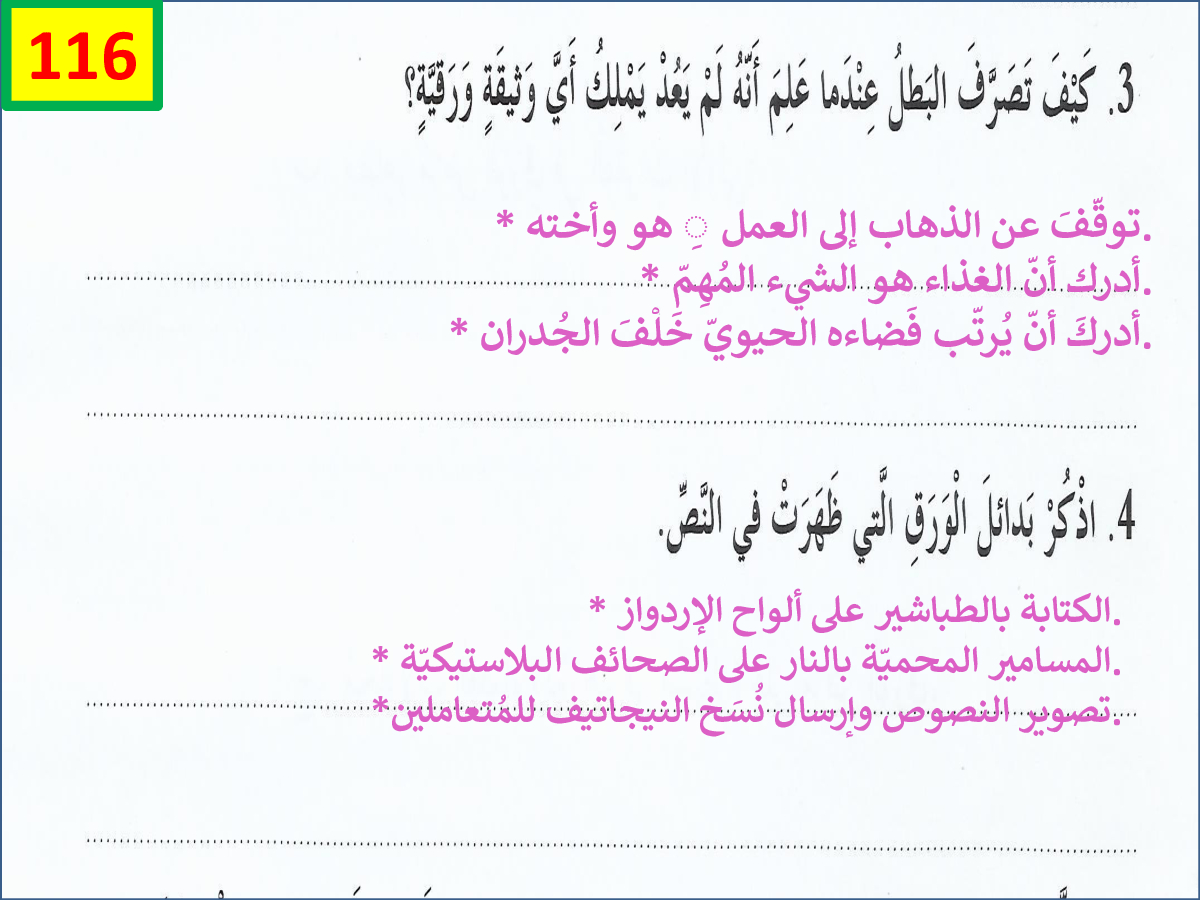 116
3. كَيْفَ تَصَرَّفَ البَطلُ عِنْدَما عَلِمَ أَنَّهُ لَمْ يَعُدْ يَمْلِكُ أَيَّ وَثيقَةٍ وَرَقيَّةٍ؟
.توقّفَ عن الذهاب إلى العمل ِ هو وأخته *
.أدرك أنّ الغذاء هو الشيء المُهِمّ *
.أدركَ أنّ يُرتّب فَضاءه الحيويّ خَلْفَ الجُدران *
4. اذْكُرْ بَدائلَ الْوَرَقِ الَّتي ظَهَرَتْ في النَّصِّ.
.الكتابة بالطباشير على ألواح الإردواز *
.المسامير المحميّة بالنار على الصحائف البلاستيكيّة *
.تصوير النصوص وإرسال نُسَخ النيجاتيف للمُتعاملين*